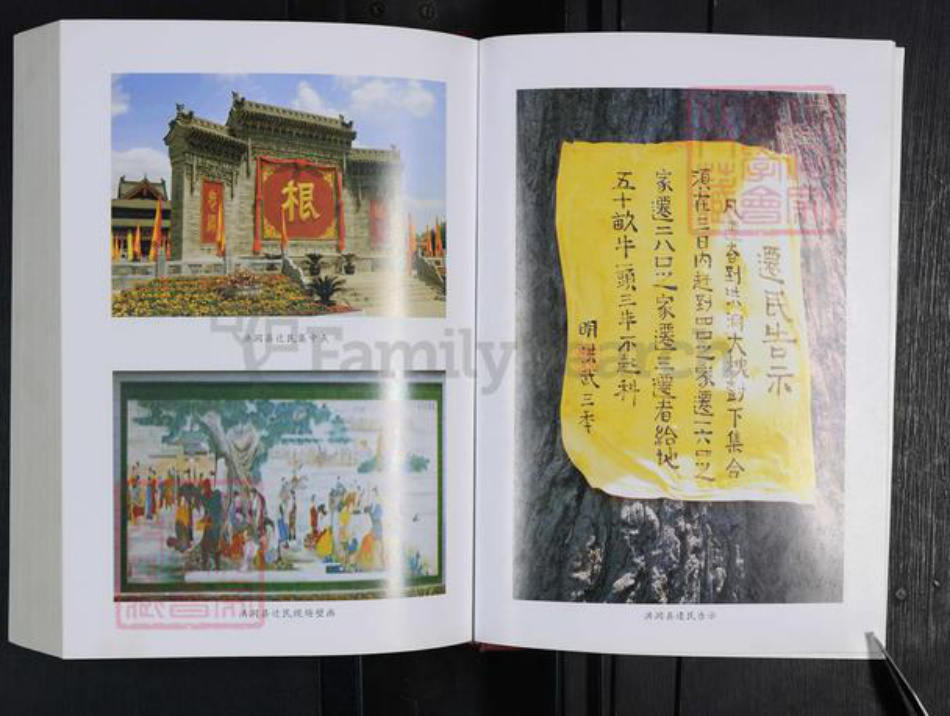 根
洪洞县迁民集中点
洪洞县迁民现场壁画
FamilySearch
遷民告示
大槐樹下集合
須在三日內赶到四口之家遷一六口之
家遷二八口之家遷三遷者給地
五十畝牛一頭三年不起科
明洪武三年
洪洞县遷民告示